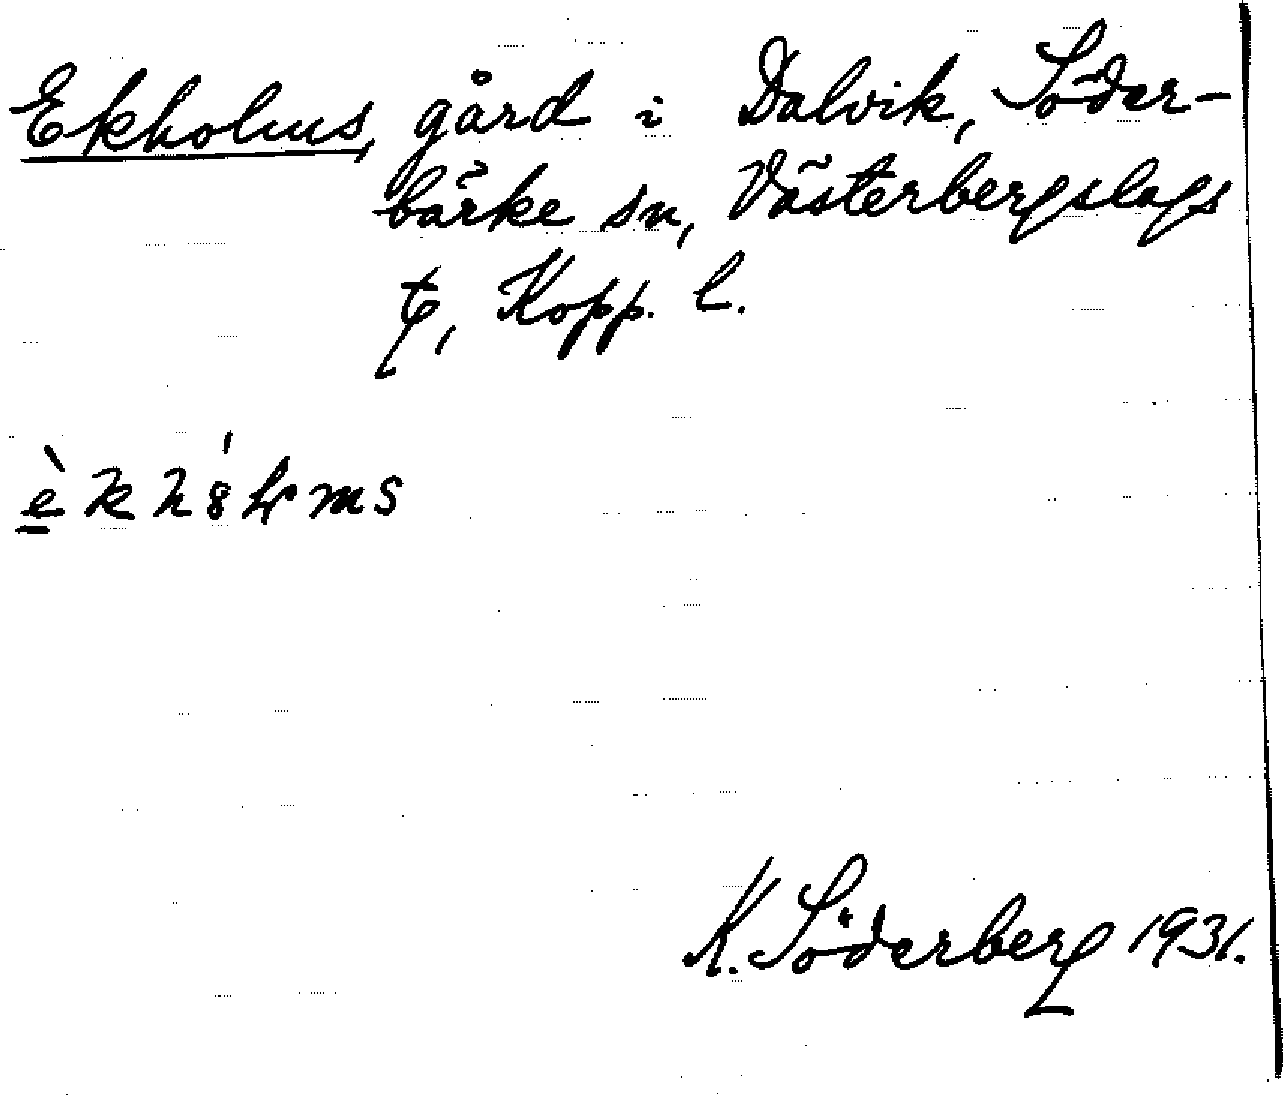 Ekholms, gård i Dalvik, Söder-
bärke sn, Västerbergslags
t, Kopp. l.
K. Söderberg 1931.